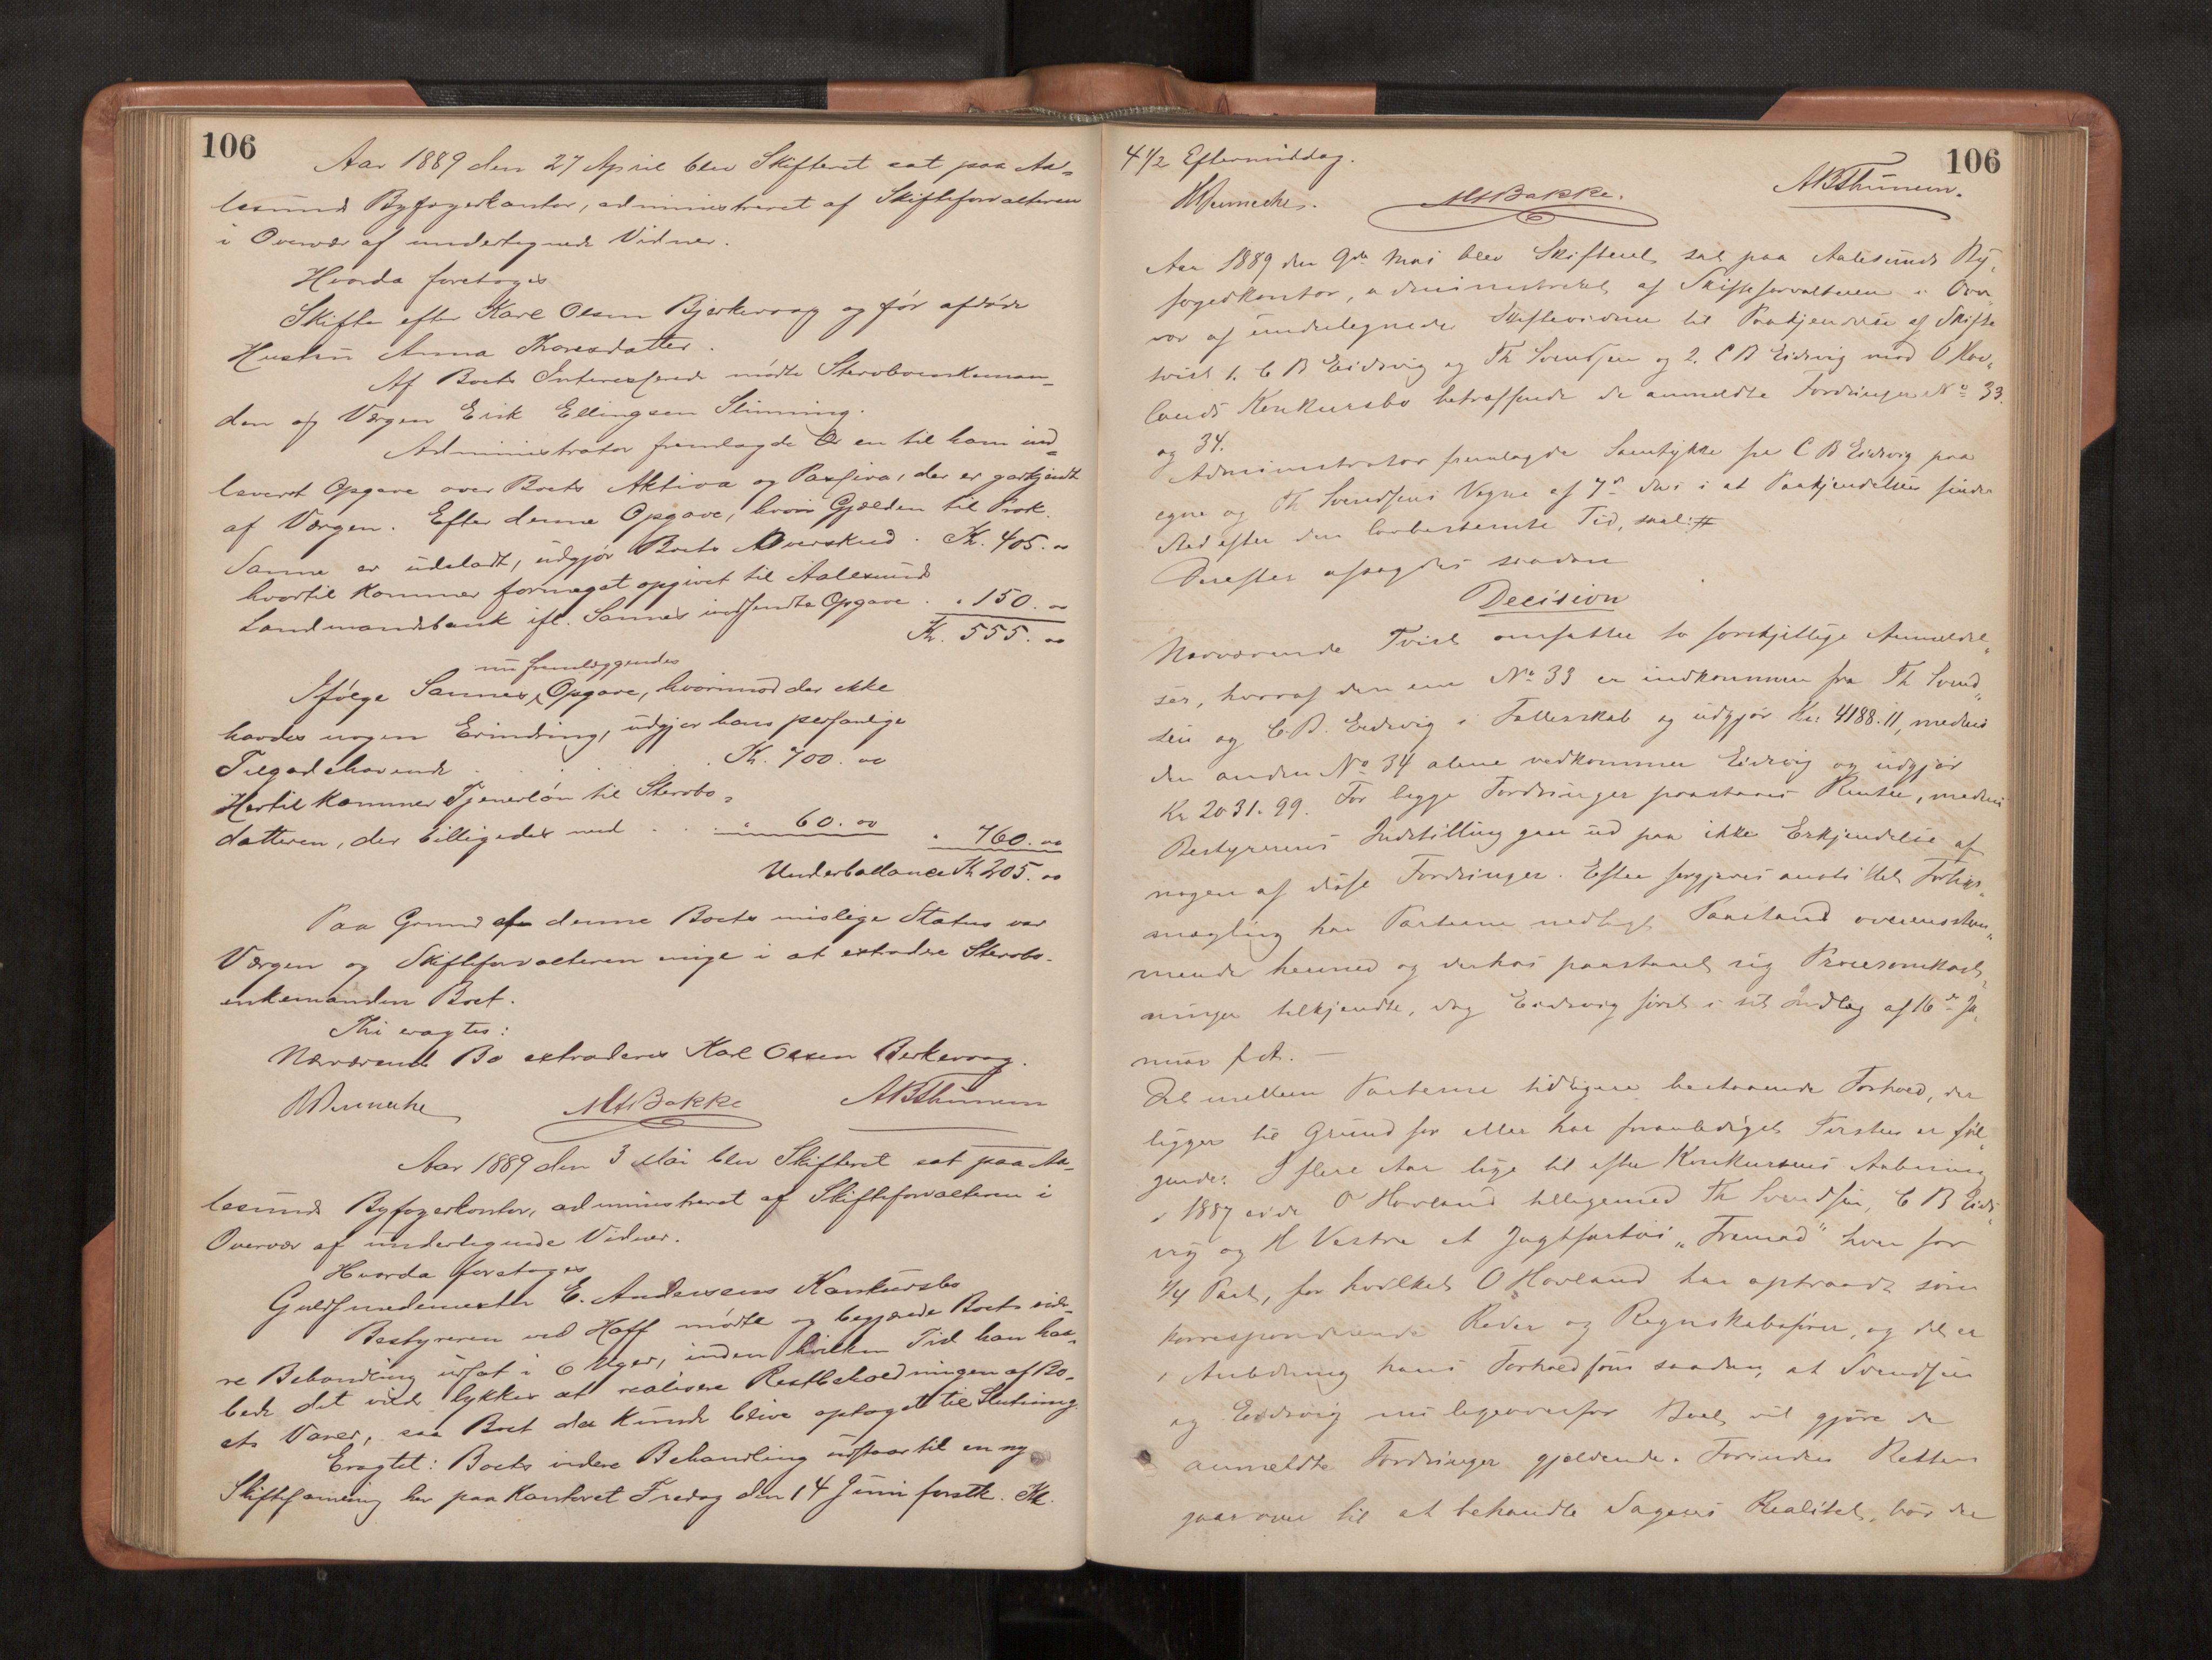 106
Aar 1889 den 27 April blev Skifteret sat paa Aa-
lesunds Byfogedkontor, administreret af Skifteforvalteren
i Overvær af undertegnede Vidner.
Hvorda foretoges
Skifte efter Karl Olsen Bjerkevaag og før afdøde
Hustru Anna Thoresdatter.
Af Boets Interesserede mødte Stervboenkeman-
den og Værgen Erik Ellingsen Slinning.
Administrator fremlagde en til ham ind-
leveret Opgave over Boets Aktiva og Passiva, der er godkjendt
af Værgen. Efter denne Opgave, hvori Gjælden til Prok.
Sanne er udeladt, udgjør Boets Overskud . Kr. 405.00
hvortil kommer formeget opgivet til Aalesunds
Landmandsbank ifl. Sannes indsendte Opgave . " 150.00
Kr. 555.00
nu fremlæggendes
Ifølge Sannes Opgave, hvorimod der ikke
havdes nogen Erindring, udgjør hans personlige
Tilgodehavende . . . . . Kr. 700.00
Hertil kommer Tjenerløn til Stervbo-
datteren, der billigedes med . . . " 60.00 " 760.00
Underballance Kr 205.00
Paa Grund af denne Boets mislige Status var
Værgen og Skifteforvalteren enige i at extradere Stervbo-
enkemanden Boet.
Thi eragtes:
Nærværende Bo extraderes Karl Olsen Berkevaag.
MHBakke ABThunem
Aar 1889 den 3 Mai blev Skifteret sat paa Aa-
lesunds Byfogedkontor, administreret af Skifteforvalteren i
Overvær af undertegnede Vidner.
Hvorda foretoges
Guldsmedemester E. Andersens Konkursbo
Bestyreren ved Hoff mødte og begjærede Boets vide-
re Behandling udsat i 6 Uger, inden hvilken Tid han haa-
bede det vilde lykkes at realisere Restbeholdningen af Bo-
ets Varer, saa Boet da kunde blive optaget til Slutning.
Eragtet: Boets videre Behandling udstaar til en ny
Skiftesamling her paa Kontoret Fredag den 14 Juni førstk. Kl.
106
4 1/2 Eftermiddag.
MHBakke. ABThunem.
Aar 1889 den 9de Mai blev Skifteret sat paa Aalesunds By-
fogedkontor, administreret af Skifteforvalteren i Over-
vær af undertegnede Skiftevidner til Paakjendelse af Skifte
tvist 1. C B Eidsvig og Th Svendsen og 2. C B Eidsvig mod O Hov-
lands Konkursbo betræffende de anmeldte Fordringer No 33
og 34.
Administrator fremlagde Samtykke fra C B Eidsvig paa
egne og Th Svendsens Vegne af 7de ds i at Paakjendelsen finder
Sted efter den lovbestemte Tid,
Derefter afsagdes saadan
Decision
Nærværende Tvist omfatter to forskjellige Anmeldel-
ser, hvoraf den ene No 33 er indkommen fra Th Svend-
sen og C.B. Eidsvig i Fællesskab og udgjør Kr: 4188.11, medens
den anden No 34 alene vedkommer Eidsvig og udgjør
Kr 2031.99. For begge Fordringer paastaaes Renter, medens
Bestyrerens Indstilling gaar ud paa ikke Erkjendelse af
nogen af disse Fordringer. Efter forgjæves anstillet Forligs-
mægling har Parterne nedlagt Paastand overensstem-
mende hermed og derhos paastaaet sig Procesomkost-
ninger tilkjendte, dog Eidsvig først i sit Indlæg af 16de Ja-
nuar d.A. —
Det mellem Parterne tidligere bestaaende Forhold, der
ligger til Grund for eller har foranlediget Tvisten er føl-
gende: I flere Aar lige til efter Konkursens Aabning
i 1887 eiede O Hovland tilligemed Th Svendsen, C B Eids-
vig og H Vestre et Jagtfartøi „Fremad" hver for
1/4 Part, for hvilket O Hovland har optraadt som
korresponderende Reder og Regnskabsfører, og det er
i Anledning hans Forhold som saadan, at Svendsen
og Eidsvig nu ligeoverfor Boet vil gjøre de
anmeldte Fordringer gjeldende. Forinden Retten
gaar over til at behandle Sagens Realitet, bør der